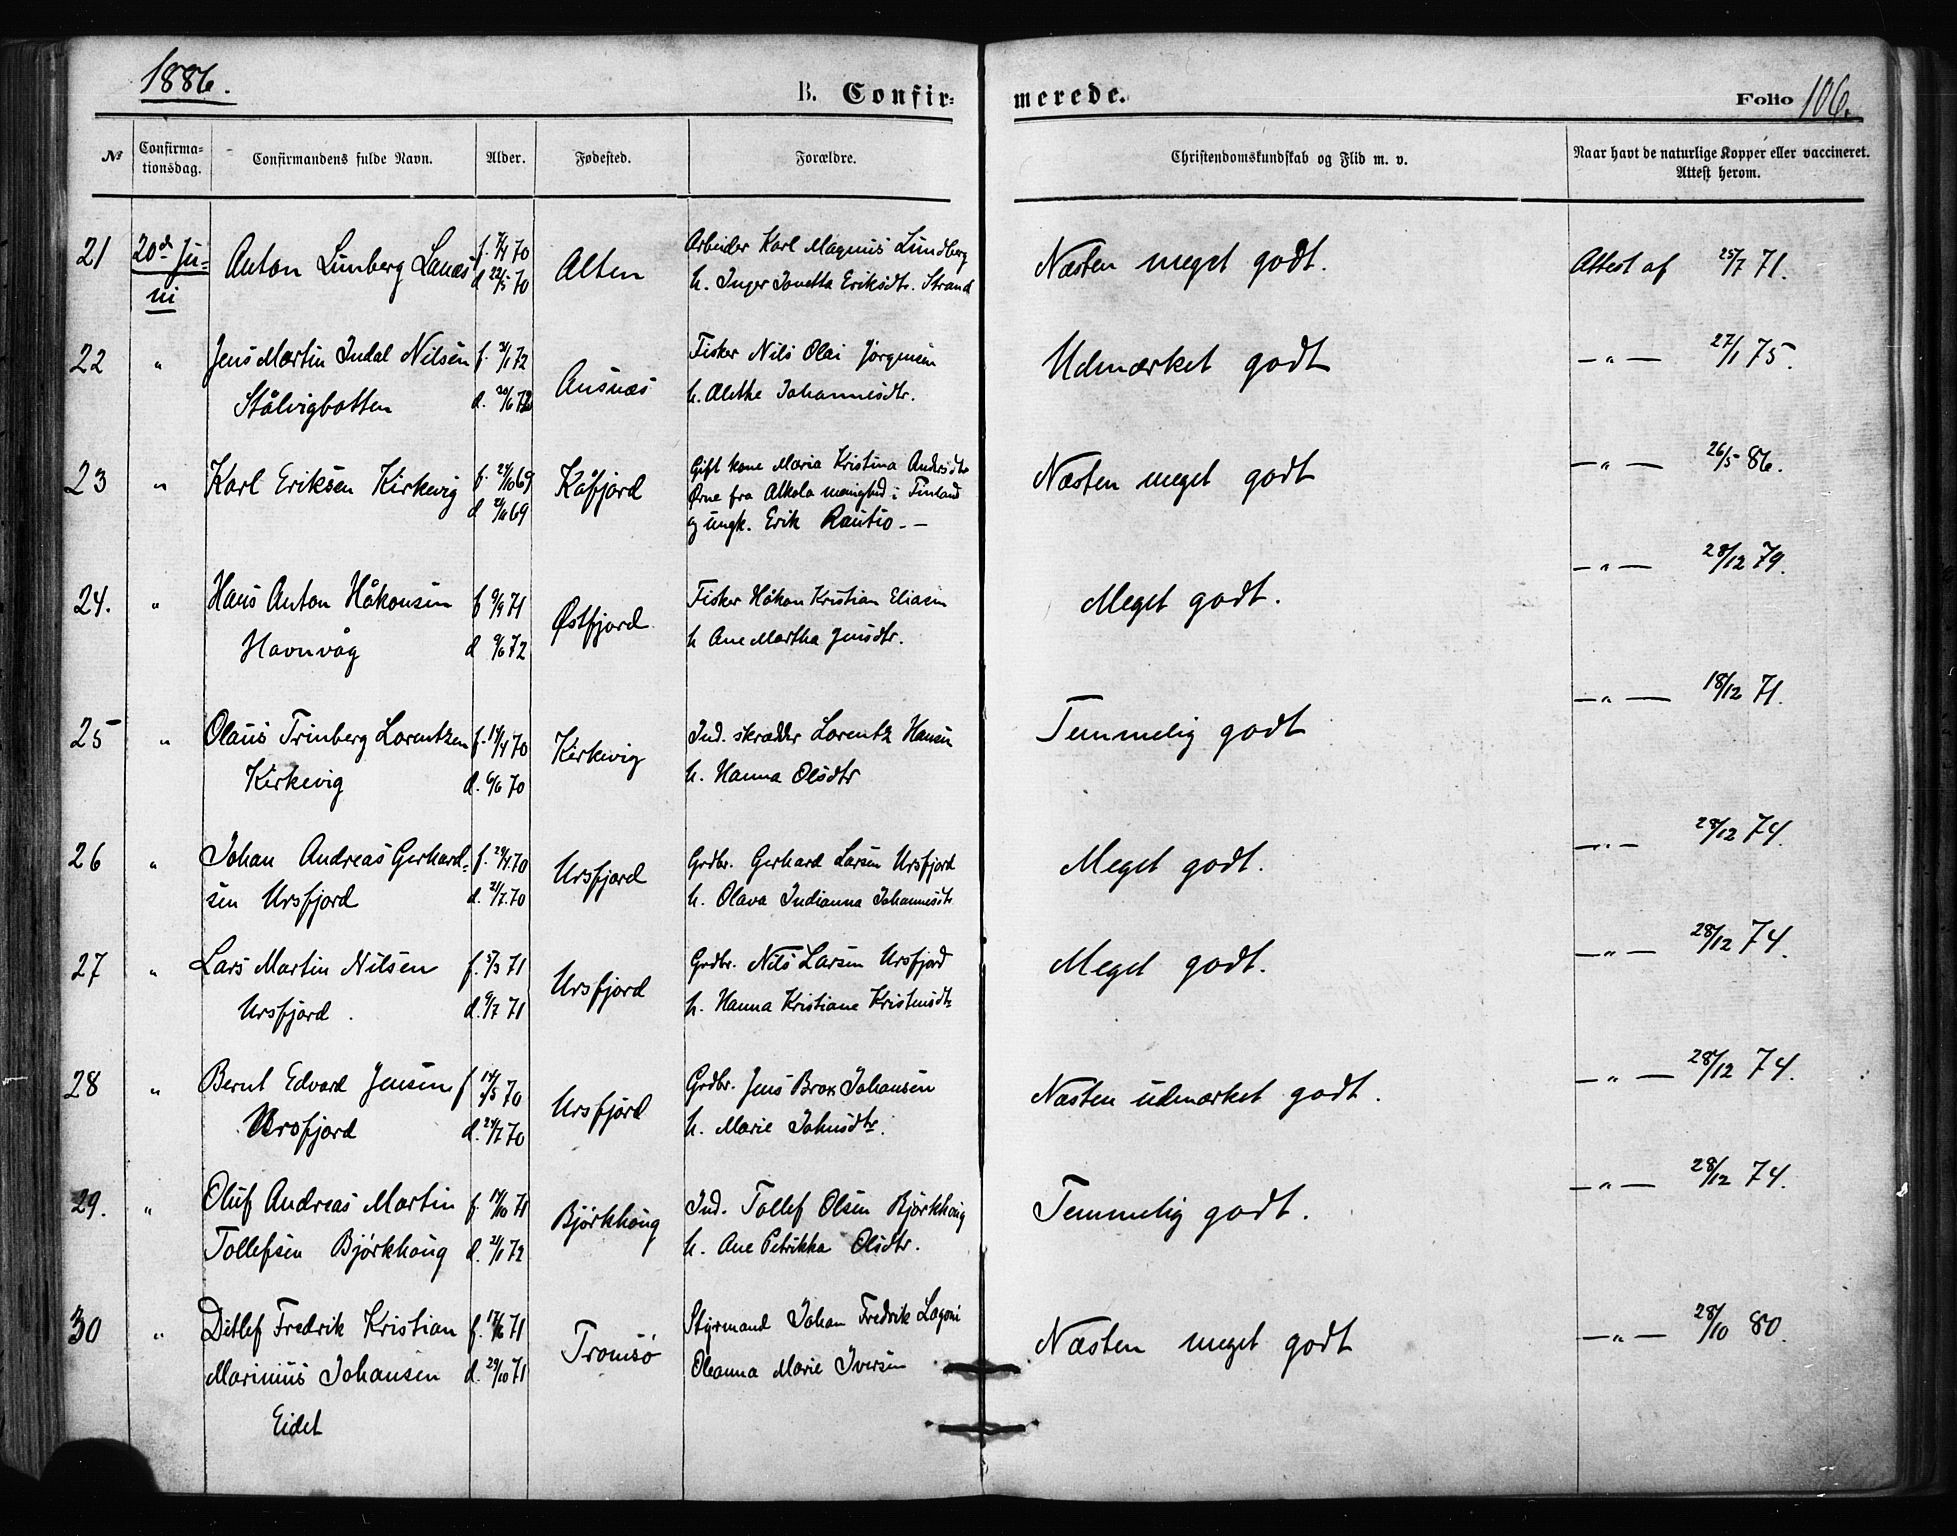 1886.
B. Confir=
merede.
Folio 106.
№
Confirma=
tionsdag.
Confirmandens fulde Navn.
Alder.
Fødested.
Forældre.
Christendomskundskab og Flid m. v.
Naar havt de naturlige Kopper eller vaccineret.
Attest herom.
21 20d Ju= Anton Limberg Lanæs f. 7/4 70 Alten Arbeider Karl Magnus Lundberg Næsten meget godt. Attest af 25/7 71.
ni d 22/5 70 h. Inger Jonetta Eriksdtr. Strand
22 " Jens Martin Indal Nilsen f. 2/1 72 Ausnæs Fisker Nils Olai Jørgensen Udmærket godt —"— 27/1 75.
Stålvigbotten d. 20/6 72 h. Alethe Johannesdtr.
23 " Karl Eriksen Kirkevig f. 24/10 69 Kåfjord Gift kone Maria Kristina Andersdtr Næsten meget godt —"— 26/5 86.
d 2/11 69 Ørne fra Alkola menighed i Finland
og ungk. Erik Rautio. —
24. " Hans Anton Håkonsen f 9/9 71 Østfjord Fisker Håkon Kristian Eliasen Meget godt. —"— 28/12 79.
Havnvåg d 9/6 72 h Ane Martha Jensdtr.
25 " Olaus Trinberg Lorentzen f. 14/4 70 Kirkevig Ind. skrædder Lorentz Hansen Temmelig godt —"— 18/12 71.
Kirkevig d. 6/6 70 h. Hanna Olsdtr
26 " Johan Andreas Gerhard= f. 24/4 70 Ursfjord Grdbr. Gerhard Larsen Ursfjord Meget godt. —"— 28/12 74.
sen Ursfjord d. 21/7. 70 h. Olava Indianna Johannesdtr
27 " Lars Martin Nilsen f. 5/3 71 Ursfjord Grdbr. Nils Larsen Ursfjord Meget godt. —"— 28/12 74.
Ursfjord. d. 9/7 71 h. Hanna Kristiane Kristensdtr
28 " Bernt Edvard Jensen f 14/5 70 Ursfjord Grdbr. Jens Brox Johansen Næsten udmærket godt. —"— 28/12 74.
Ursfjord d. 24/7 70 h. Marie Johnsdtr.
29. " Oluf Andreas Martin f. 14/10 71 Bjørkhoug Ind. Tollef Olsen Bjørkhoug Temmelig godt. —"— 28/12 74.
Tollefsen Bjørkhoug d. 21/1 72 h. Ane Petrikka Olsdtr.
30 " Ditlef Fredrik Kristian f. 17/6 71 Tromsø Styrmand Johan Fredrik Lagoni Næsten meget godt —"— 28/10 80.
Marinius Johansen d. 29/10 71 Oleanna Marie Iversen
Eidet